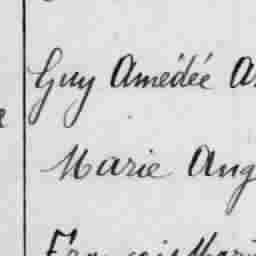 Guy Amédée A
Marie Ang